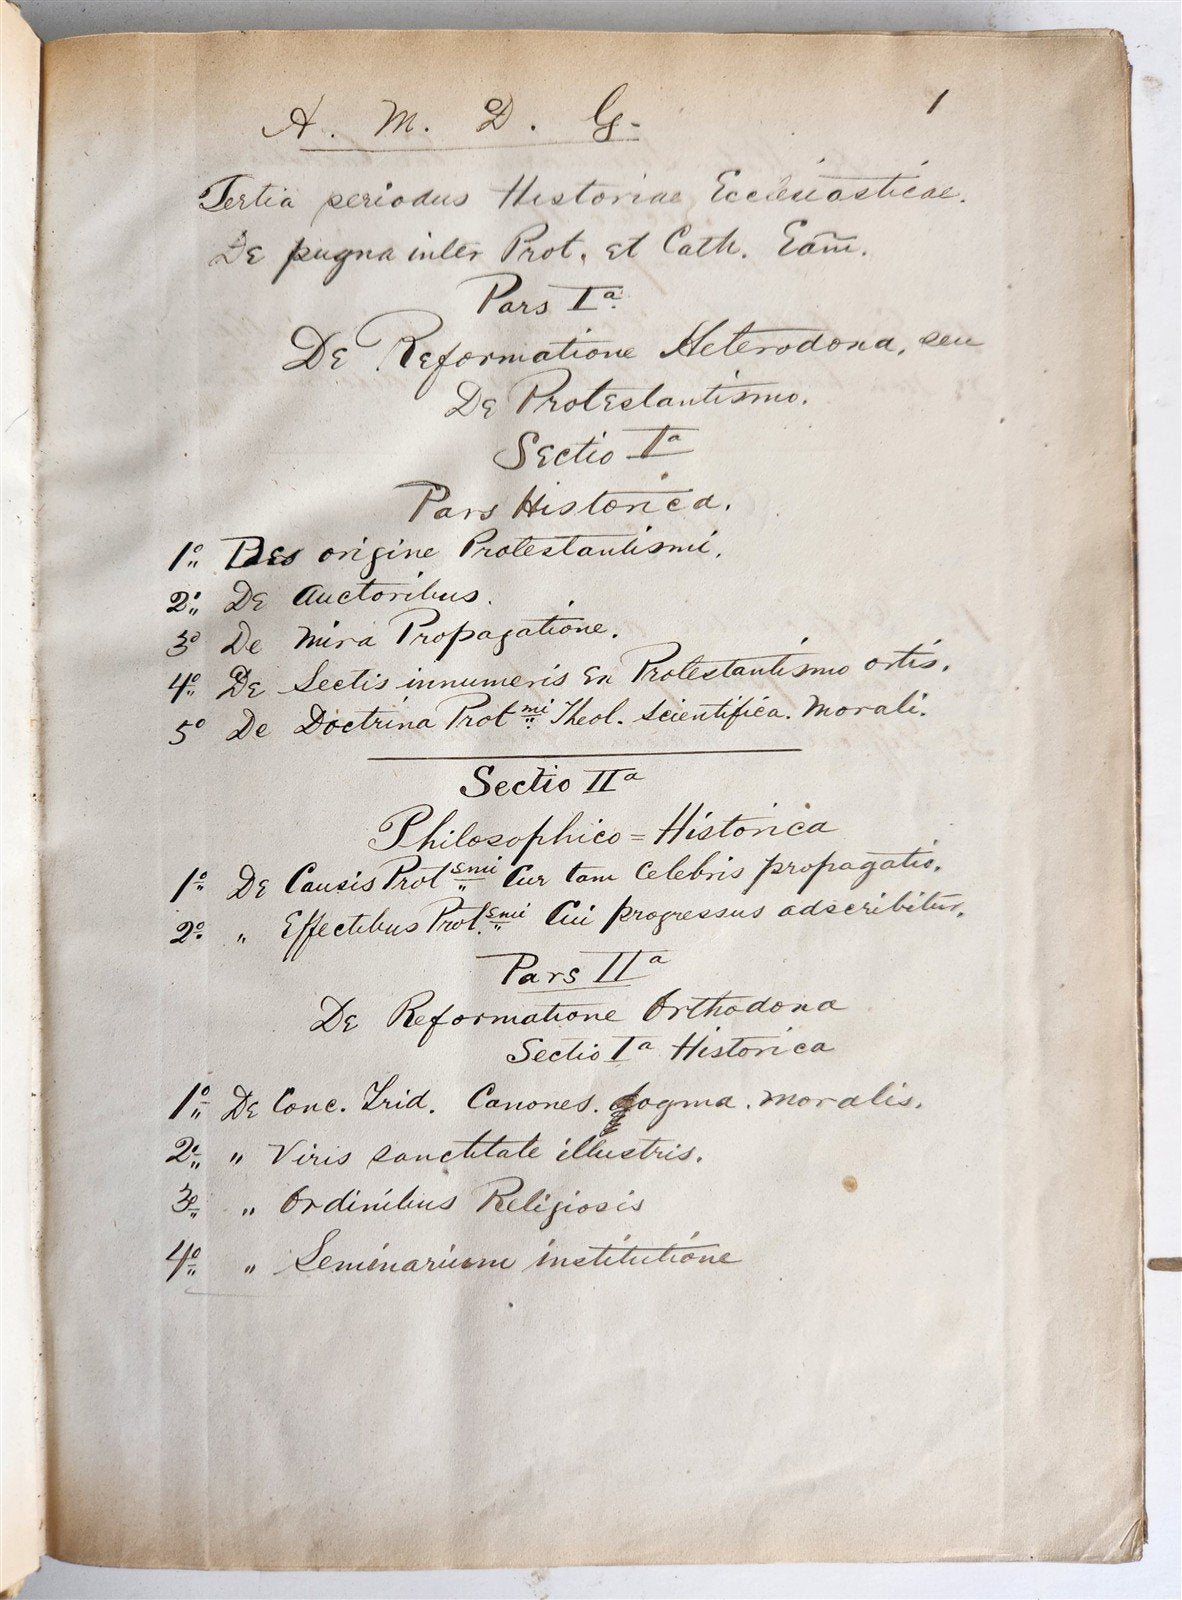 A. M. D. G.
1
Tertia periodus Historiae Ecclesiasticae.
De pugna inter Prot. et Cath. Eam̄.
Pars Iª
De Reformatione Heterodoxa, seu
De Protestantismo.
Sectio Iª
Pars Historica.
1º De origine Protestantismi.
2º De Auctoribus.
3º De mira Propagatione.
4º De Sectis innumeris ex Protestantismo ortis.
5º De Doctrina Protmi Theol. scientifica. Morali.
Sectio IIª
Philosophico=Historica
1º De Causis Protsmi Cur tam celebris propagatio.
2º „ Effectibus Prot.smi Cui progressus adscribitur.
Pars IIª
De Reformatione Orthodoxa
Sectio Iª Historica
1º De Conc. Trid. Canones. dogma. moralis.
2º „ Viris sanctitate illustris.
3º „ Ordinibus Religiosis
4º „ Seminarium institutione